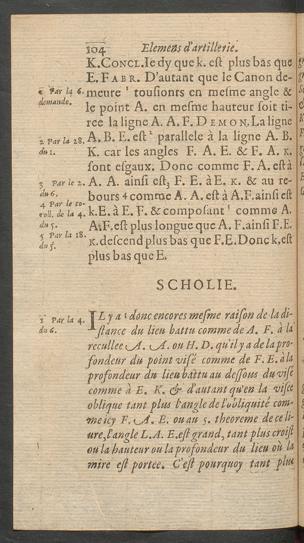 104 Elemens d'artillerie.
K. CONCL. Ie dy que k. est plus bas que
E. FABR. D'autant que le Canon de-
1 Par la 6. demande.
meure ¹ tousionrs en mesme angle &
le point A. en mesme hauteur soit ti-
ree la ligne A. A. F. DEMON. La ligne
2 Par la 28. du 1.
A. B. E. est ² parallele à la ligne A. B.
K. car les angles F. A. E. & F. A. K.
sont esgaux. Donc comme F. A. est à
3 Par le 2. du 6.
A. A. ainsi est ³ F. E. à E. K. & au re-
4 Par le co-
roll. de la 4.
du 5.
bours ⁴ comme A. A. est à A. F. ainsi est
k. E. à E. F. & composant ⁵ comme A.
5 Par la 18. du 5.
A. F. est plus longue que A. F. ainsi F. E.
K. descend plus bas que F. E. Donc k. est
plus bas que E.
SCHOLIE.
1 Par la 4. du 6.
IL y a ¹ donc encores mesme raison de la di-
stance du lieu battu comme de A. F. à la
recullee A. A. ou H. D. qu'il y a de la pro-
fondeur du point visé comme de F. E. à la
profondeur du lieu battu au dessous du visé
comme à E. K. & d'autant qu'en la visee
oblique tant plus l'angle de l'obliquité com-
me icy F. A. E. ou au 5. theoreme de ce li-
ure, l'angle L. A. E. est grand, tant plus croist
ou la hauteur ou la profondeur du lieu où la
mire est portee. C'est pourquoy tant plus